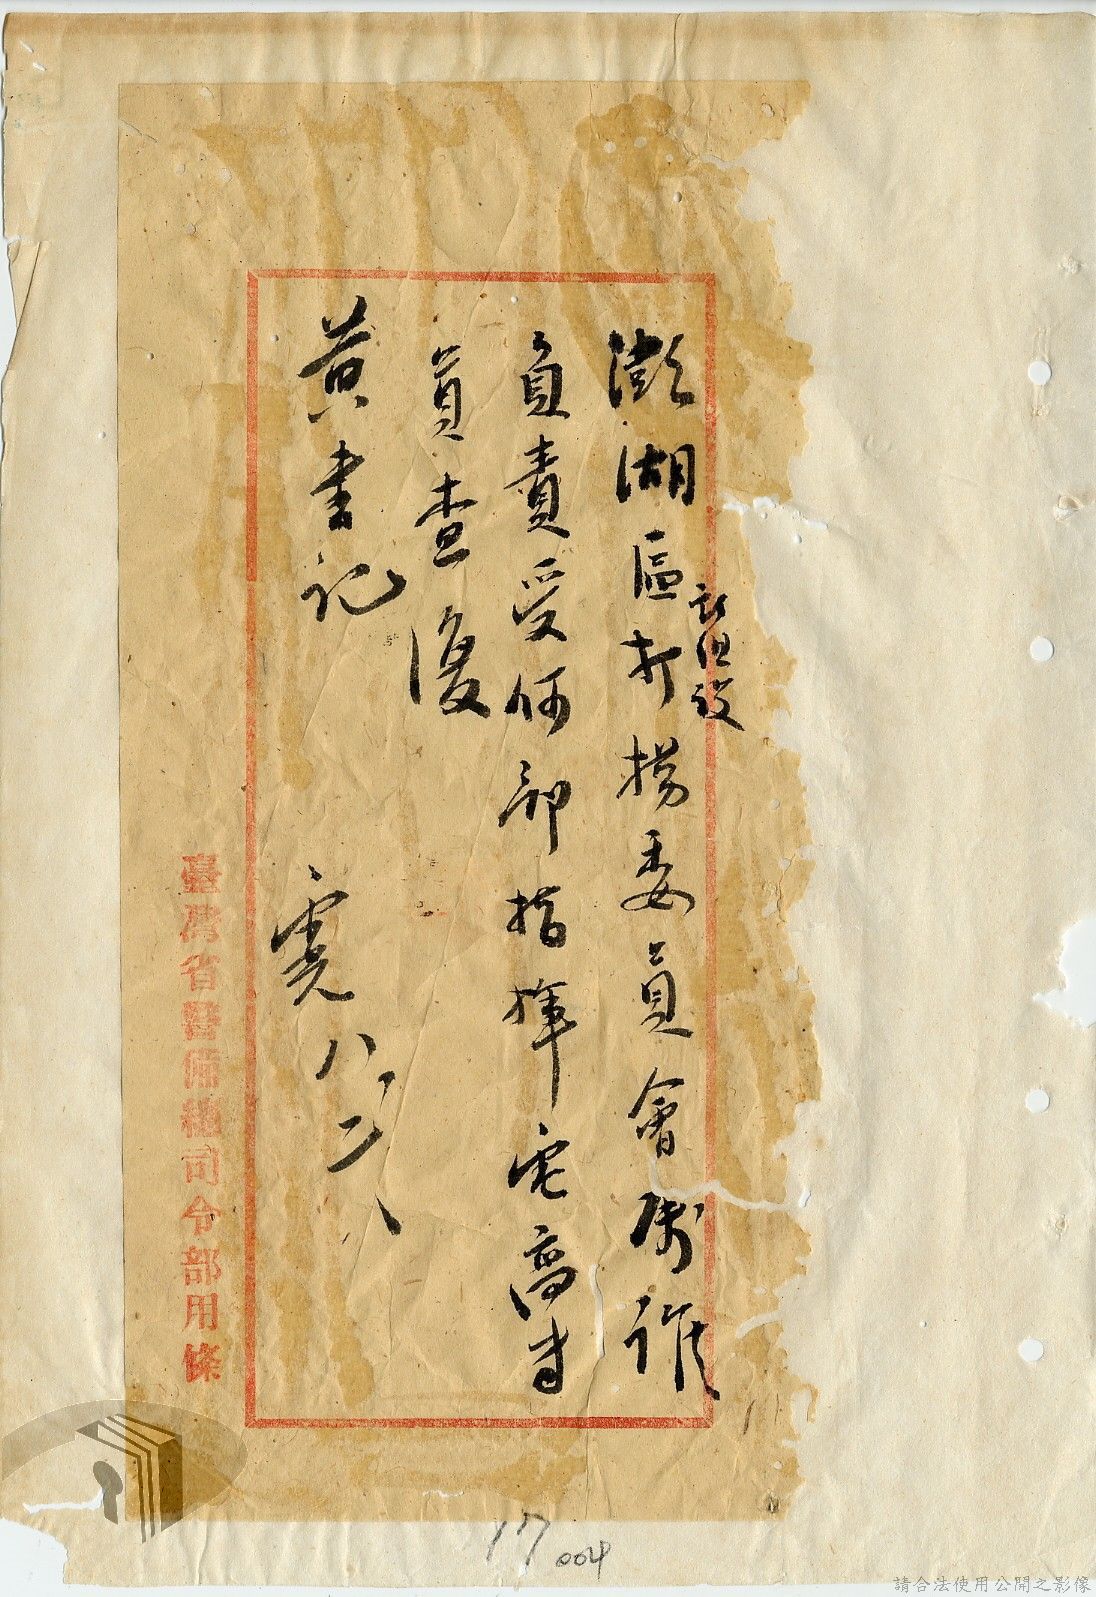 澎湖區打撈委員會係誰
新組設
負責受何部指揮電高專
員查復
黃書記
霓 八、二、
臺灣省警備總司令部用條
17
004
請合法使用公開之影像